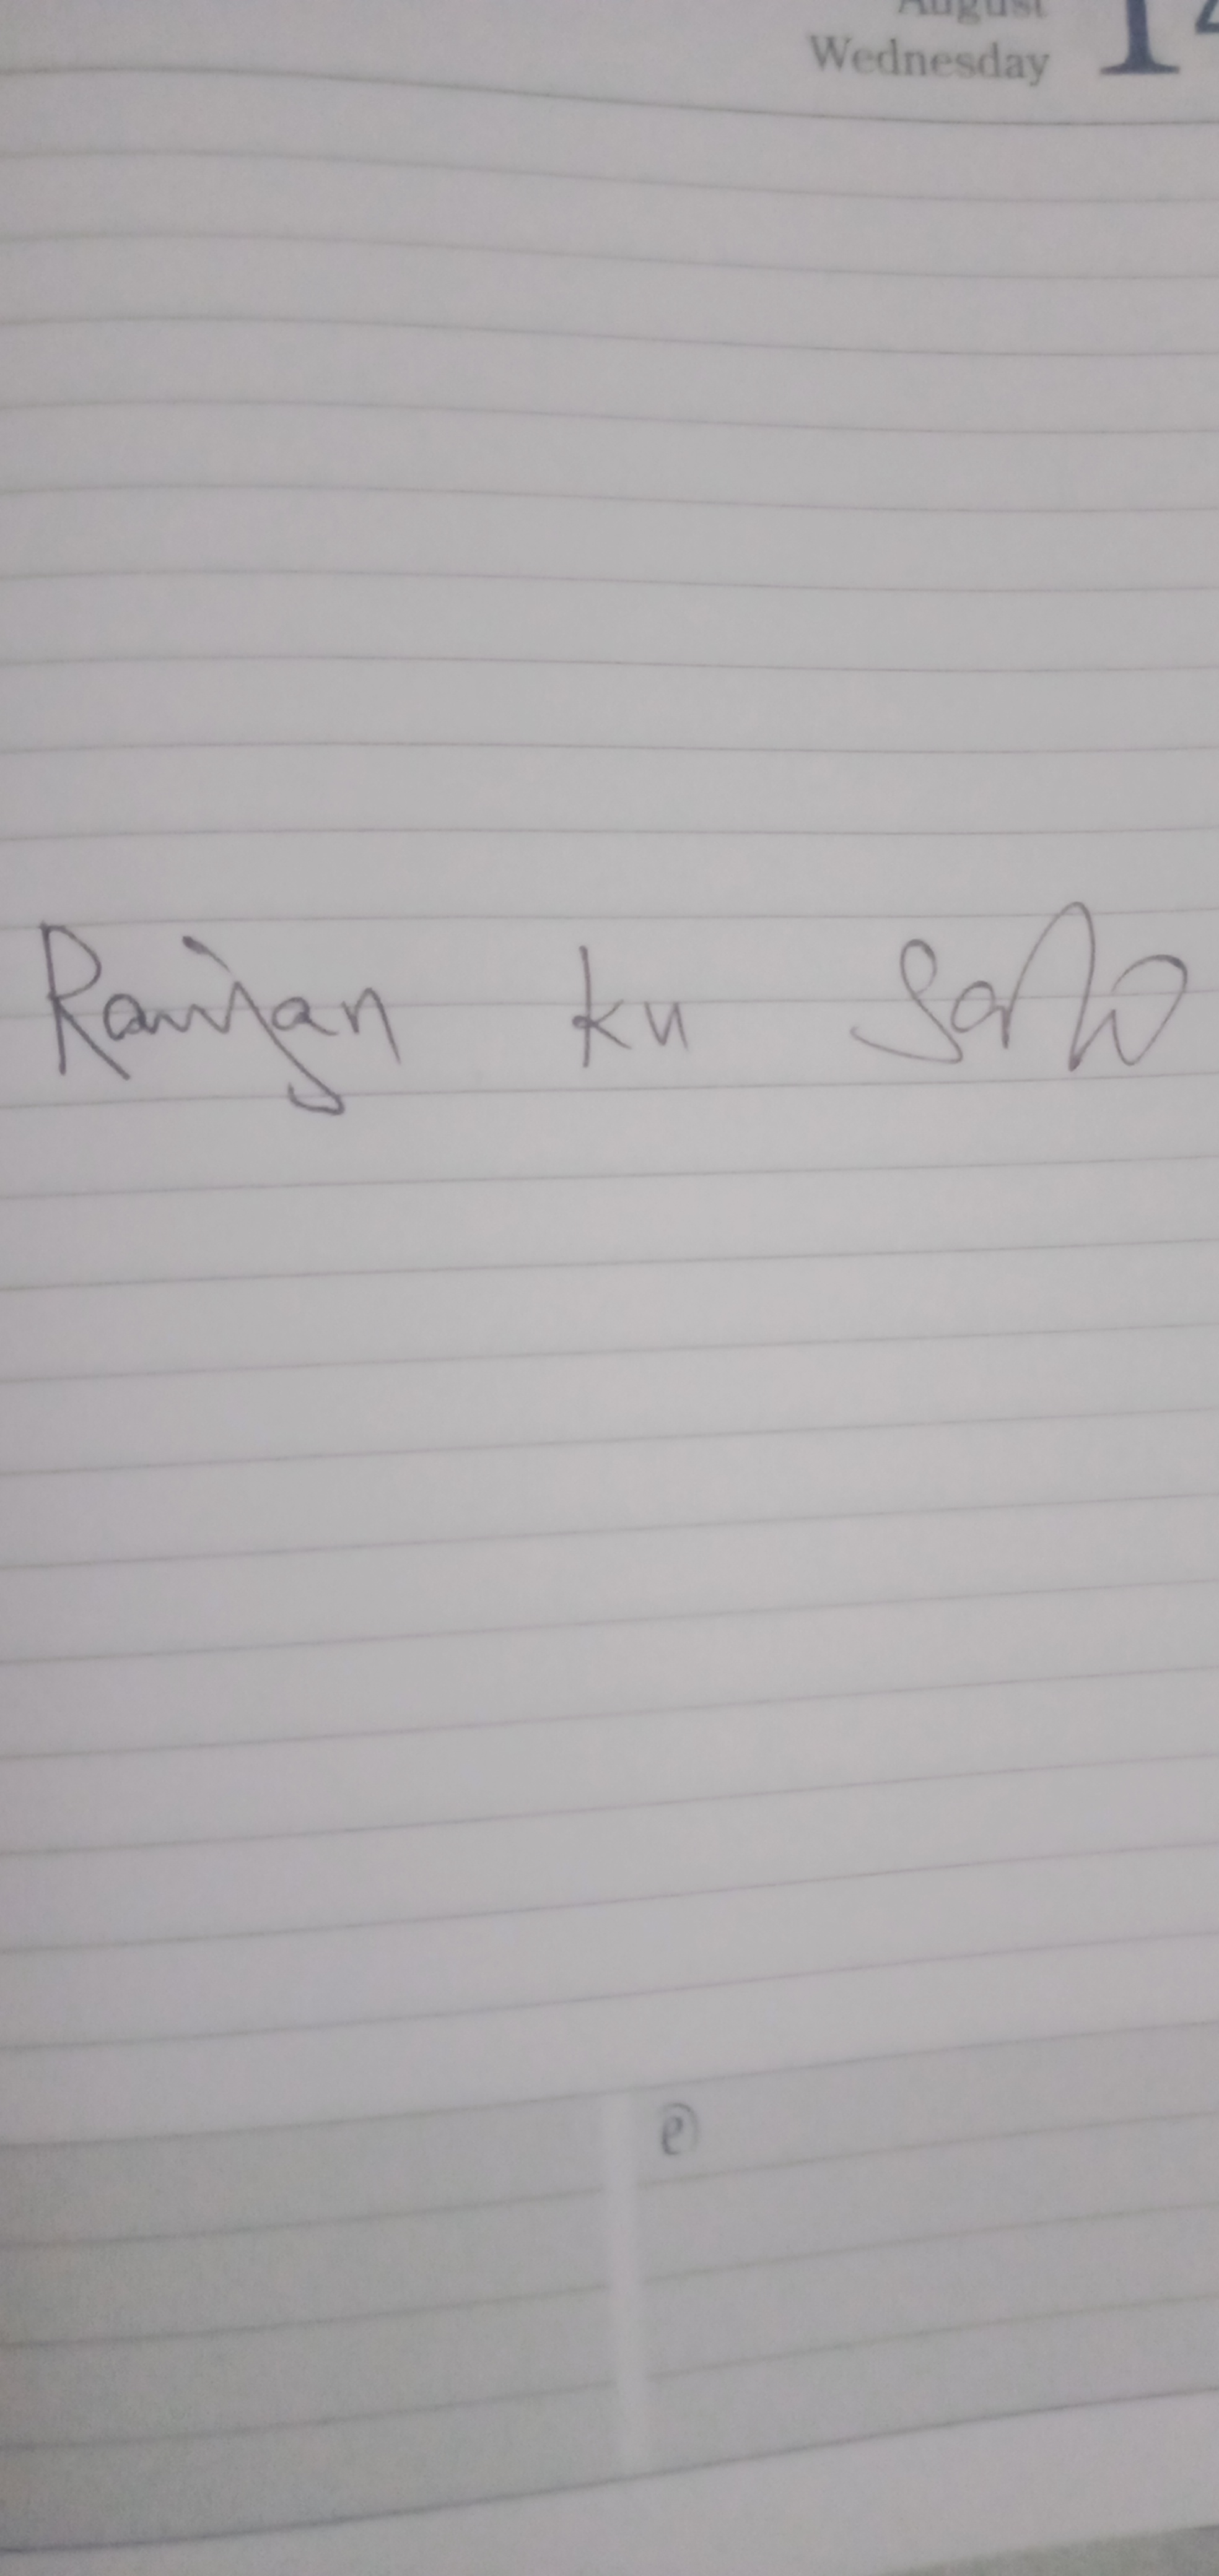 August
Wednesday 14
Ranjan ku Sahu
e